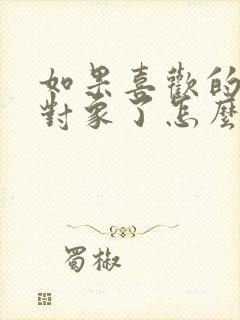 如果喜歡的
對象了怎麼
蜀椒